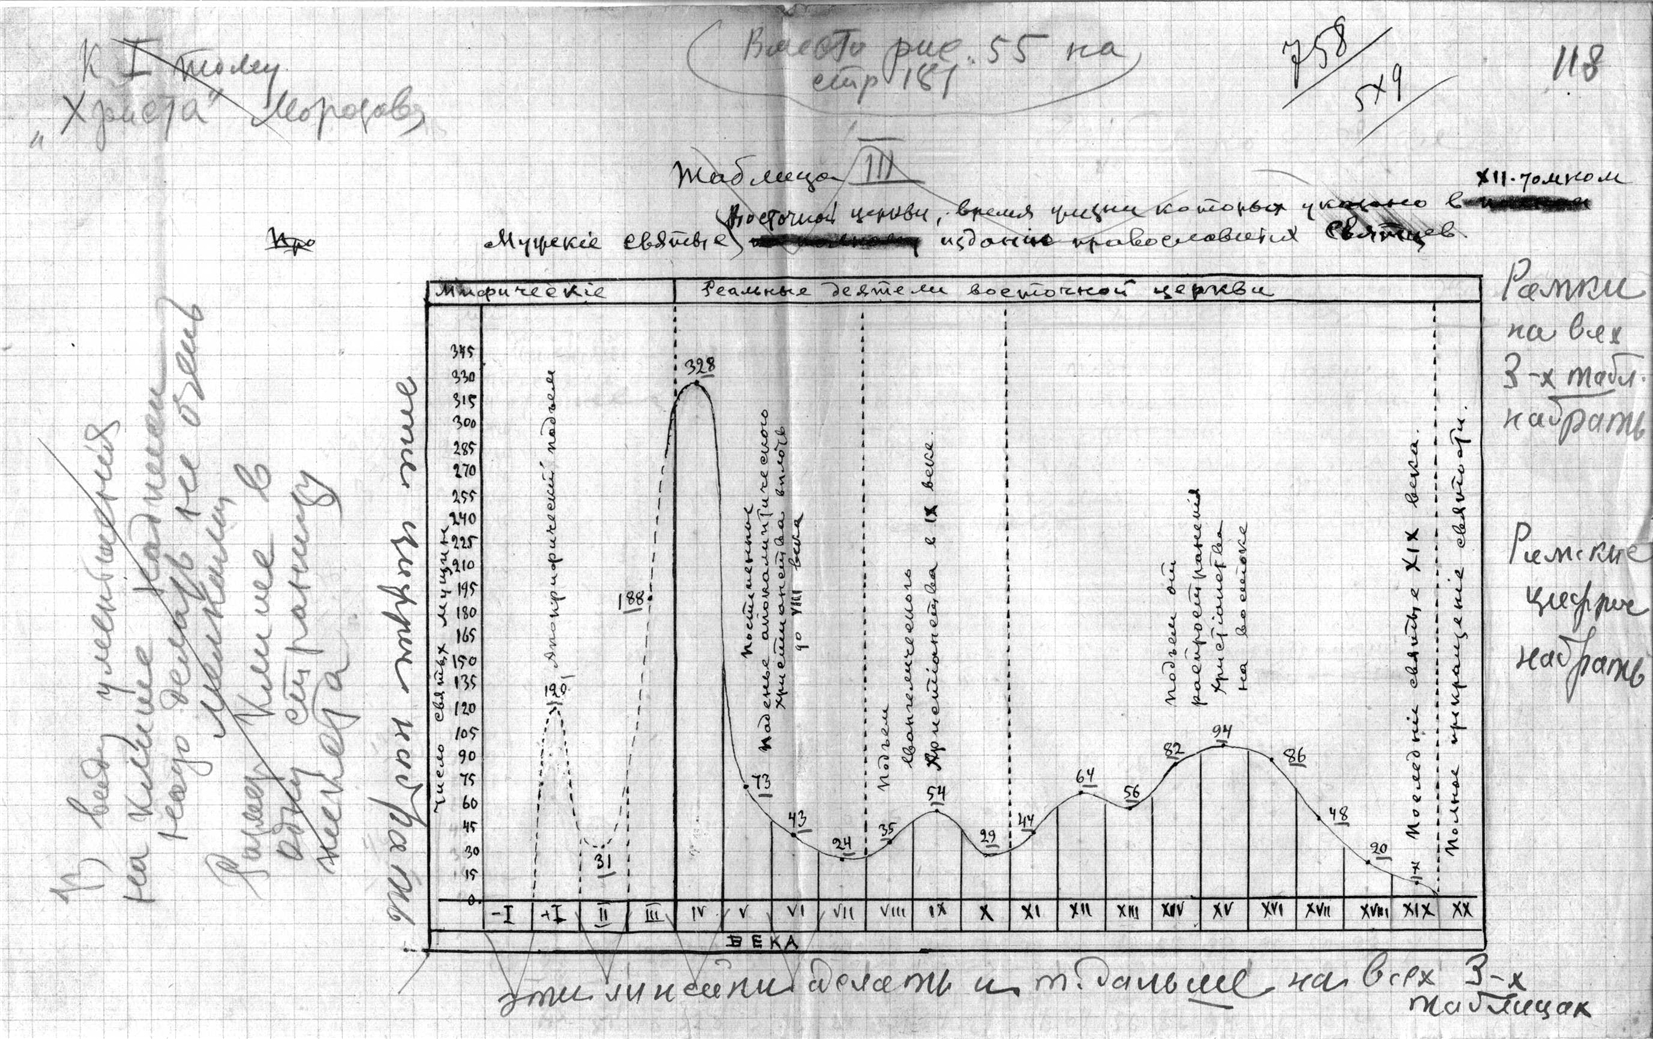 К I тому
„Христа" Морозова
Вместо рис. 55 на
стр 181
758
5x9
118
Таблица III
XII-томном
Восточной церкви, время жизни которых указано в
Про
Мужскіе святые изданіи православных Святцев.
Мифическіе
Реальные деятели восточной церкви
Рамки
на всех
3-х табл.
набрать
Римские
цифры
набрать
В) виду уменьшения
на клише
надо делать не очень
мелкими
Размер клише в
одну страницу
текста
эти цифры набрать
Число святых мущин
345
330
315
300
285
270
255
240
225
210
195
180
165
150
135
120
105
90
75
60
45
30
15
0
Апокрифический подъем
120
31
188
328
Постепенное
паденье апокалиптического
христианства вплоть
до VIII века
73
43
24
35
Подъем
Евангелического
Христіонства в IX веке.
54
29
44
64
56
82
Подъем от
распространения
Христіанства
на востоке
94
86
48
20
Последніе святые XIX века.
Полное прекращеніе святости.
-I
+I
II
III
IV
V
VI
VII
VIII
IX
X
XI
XII
XIII
XIV
XV
XVI
XVII
XVIII
XIX
XX
ВЕКА
эти линейки делать и т. дальше на всех 3-х
таблицах